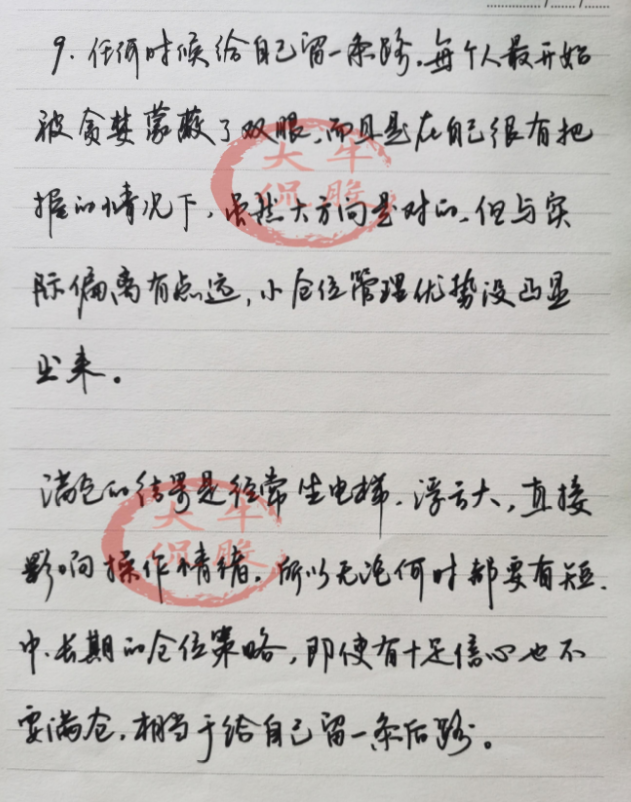 9. 任何时候给自己留一条路。每个人最开始
被贪婪蒙蔽了双眼,而且是在自己很有把
握的情况下,虽然大方向是对的,但与实
际偏离有点远,小仓位管理优势没凸显
出来。
满仓的结果是经常坐电梯,浮亏大,直接
影响操作情绪。所以无论何时都要有短、
中、长期的仓位策略,即使有十足信心也不
要满仓,相当于给自己留一条后路。
大牛
侃股
大牛
侃股